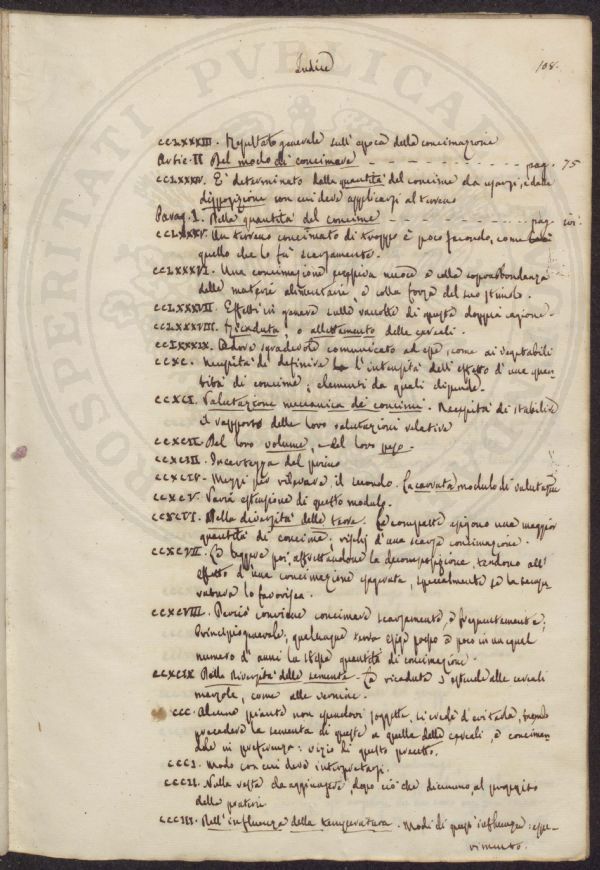 Indice
108.
CCLXXXIII. Resultato generale sull'epoca della concimazione
Artic. II Del modo di concimare - - - - - - - - pag. 75
CCLXXXIV. E' determinato dalla quantità del concime da usarsi, e dalla
disposizione con cui deve applicarsi al terreno
Parag. I. Della quantità del concime - - - - - - - - pag. ivi.
CCLXXXV. Un terreno concimato di troppo è poco fecondo, come
quello che lo fu scarsamente.
CCLXXXVI. Una concimazione eccessiva nuoce o colla soprabbondanza
delle materie alimentari, o colla forza del suo stimolo.
CCLXXXVII. Effetti in genere sulle raccolte di questa doppia cagione.
CCLXXXVIII. Ricaduta, o allettamento delle cereali.
CCLXXXIX. Odore sgradevole comunicato ad esse, come ai vegetabili
CCXC. Necessità di definire l'intensità dell'effetto d'una quan-
tità di concime; elementi da quali dipende.
CCXCI. Valutazione meccanica de' concimi. Necessità di stabilire
il rapporto delle loro valutazioni relative
CCXCII. Del loro volume, e del loro peso.
CCXCIII. Incertezza del primo
CCXCIV. Mezzi per rilevare il secondo. La carrata modulo di valutazione
CCXCV. Varia estensione di questo modulo.
CCXCVI. Della diversità delle terre. Le compatte esigono una maggior
quantità di concime; rischj d'una scarsa concimazione.
CCXCVII. Le leggere poi, affrettandone la decomposizione, tendono all'
effetto d'una concimazione esagerata, specialmente se la tempe-
ratura lo favorisca.
CCXCVIII. Perciò conviene concimare scarsamente, e frequentemente;
Principio generale; qualunque terra esige presso a poco in un egual
numero d'anni la stessa quantità di concimazione.
CCXCIX Della diversità delle sementi. La ricaduta s'estende alle cereali
marzole, come alle vernine.
CCC. Alcune piante non essendovi soggette, si crede d'evitarla, facendo
precedere la sementa di queste a quella delle cereali, e conciman-
dole in preferenza: vizio di questo precetto.
CCCI. Modo con cui deve interpretarsi.
CCCII. Nulla resta da aggiungere, dopo ciò che dicemmo, al proposito
delle praterie
CCCIII. Dell'influenza della temperatura. Modi di questa influenza: espe-
rimento.